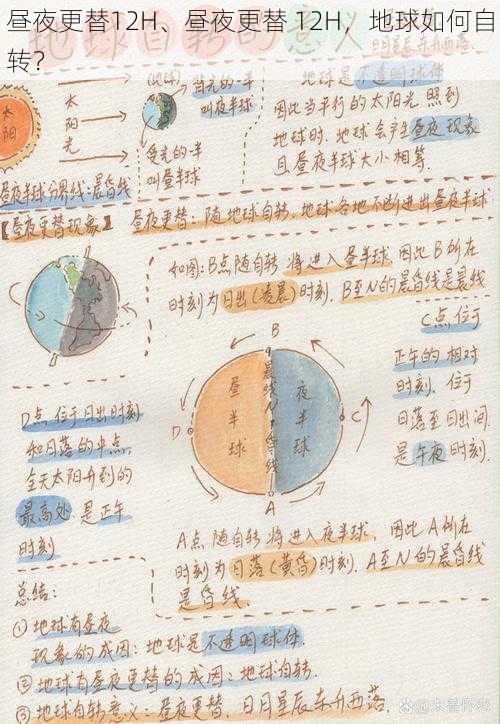 昼夜更替12H、昼夜更替 12H，地球如何自转？
地球自转的意义
太阳
太阳光
(地球)
背光的一半
叫夜半球
受光的一半
叫昼半球
地球是不透明球体
因此当平行的太阳光 照到
地球时，地球会产生昼夜现象
且昼夜半球大小相等.
昼夜半球分界线:晨昏线
【昼夜更替现象】 昼夜更替：随地球自转,地球各地不断进出昼夜半球
如图:B点随自转 将进入昼半球,因此 B所在
时刻为日出(凌晨)时刻，B至N的晨昏线是晨线
C点位于
正午的相对
时刻，位于
日落至日出间
是午夜时刻.
B
昼半球
晨线N昏线
夜半球
D
C
A
D点 位于日出时刻
和日落的中点，
全天太阳升到的
最高处 是正午
时刻
A点 随自转将进入夜半球， 因此 A所在
时刻为日落(黄昏)时刻，A至N的晨昏线
是昏线.
总结：
①地球有昼夜
现象的成因：地球是不透明球体.
②地球有昼夜更替的成因：地球自转.
③地球自转意义：昼夜更替、日月星辰东升西落.